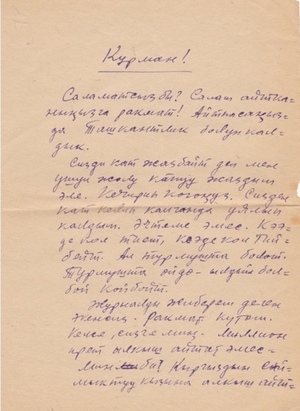 Курман!
Саламатсызбы? Салам айтка-
ныңызга рахмат! Айтпасаңыз-
да Ташкентлик болуп кал-
дык.
Сизди кат жазбайт деп мен
ушул жолу катуу жаздым
эле. Кечирип коюңуз. Сиздин
кат келип калганда уялып
калдым. Эчтеме эмес. Кээ-
де кол тиет, кээде кол тий-
бейт. Ал турмушта болот.
Турмушта өйдө-ылдый бол-
бой койбойт.
Журналды жиберем деген
экенсиз. Рахмат күтөм.
Келсе, сизге миң. Миллион
ирет алкыш айтат эмес-
минби? Кыргыздын сый-
мыктуу кызына алкыш айт-